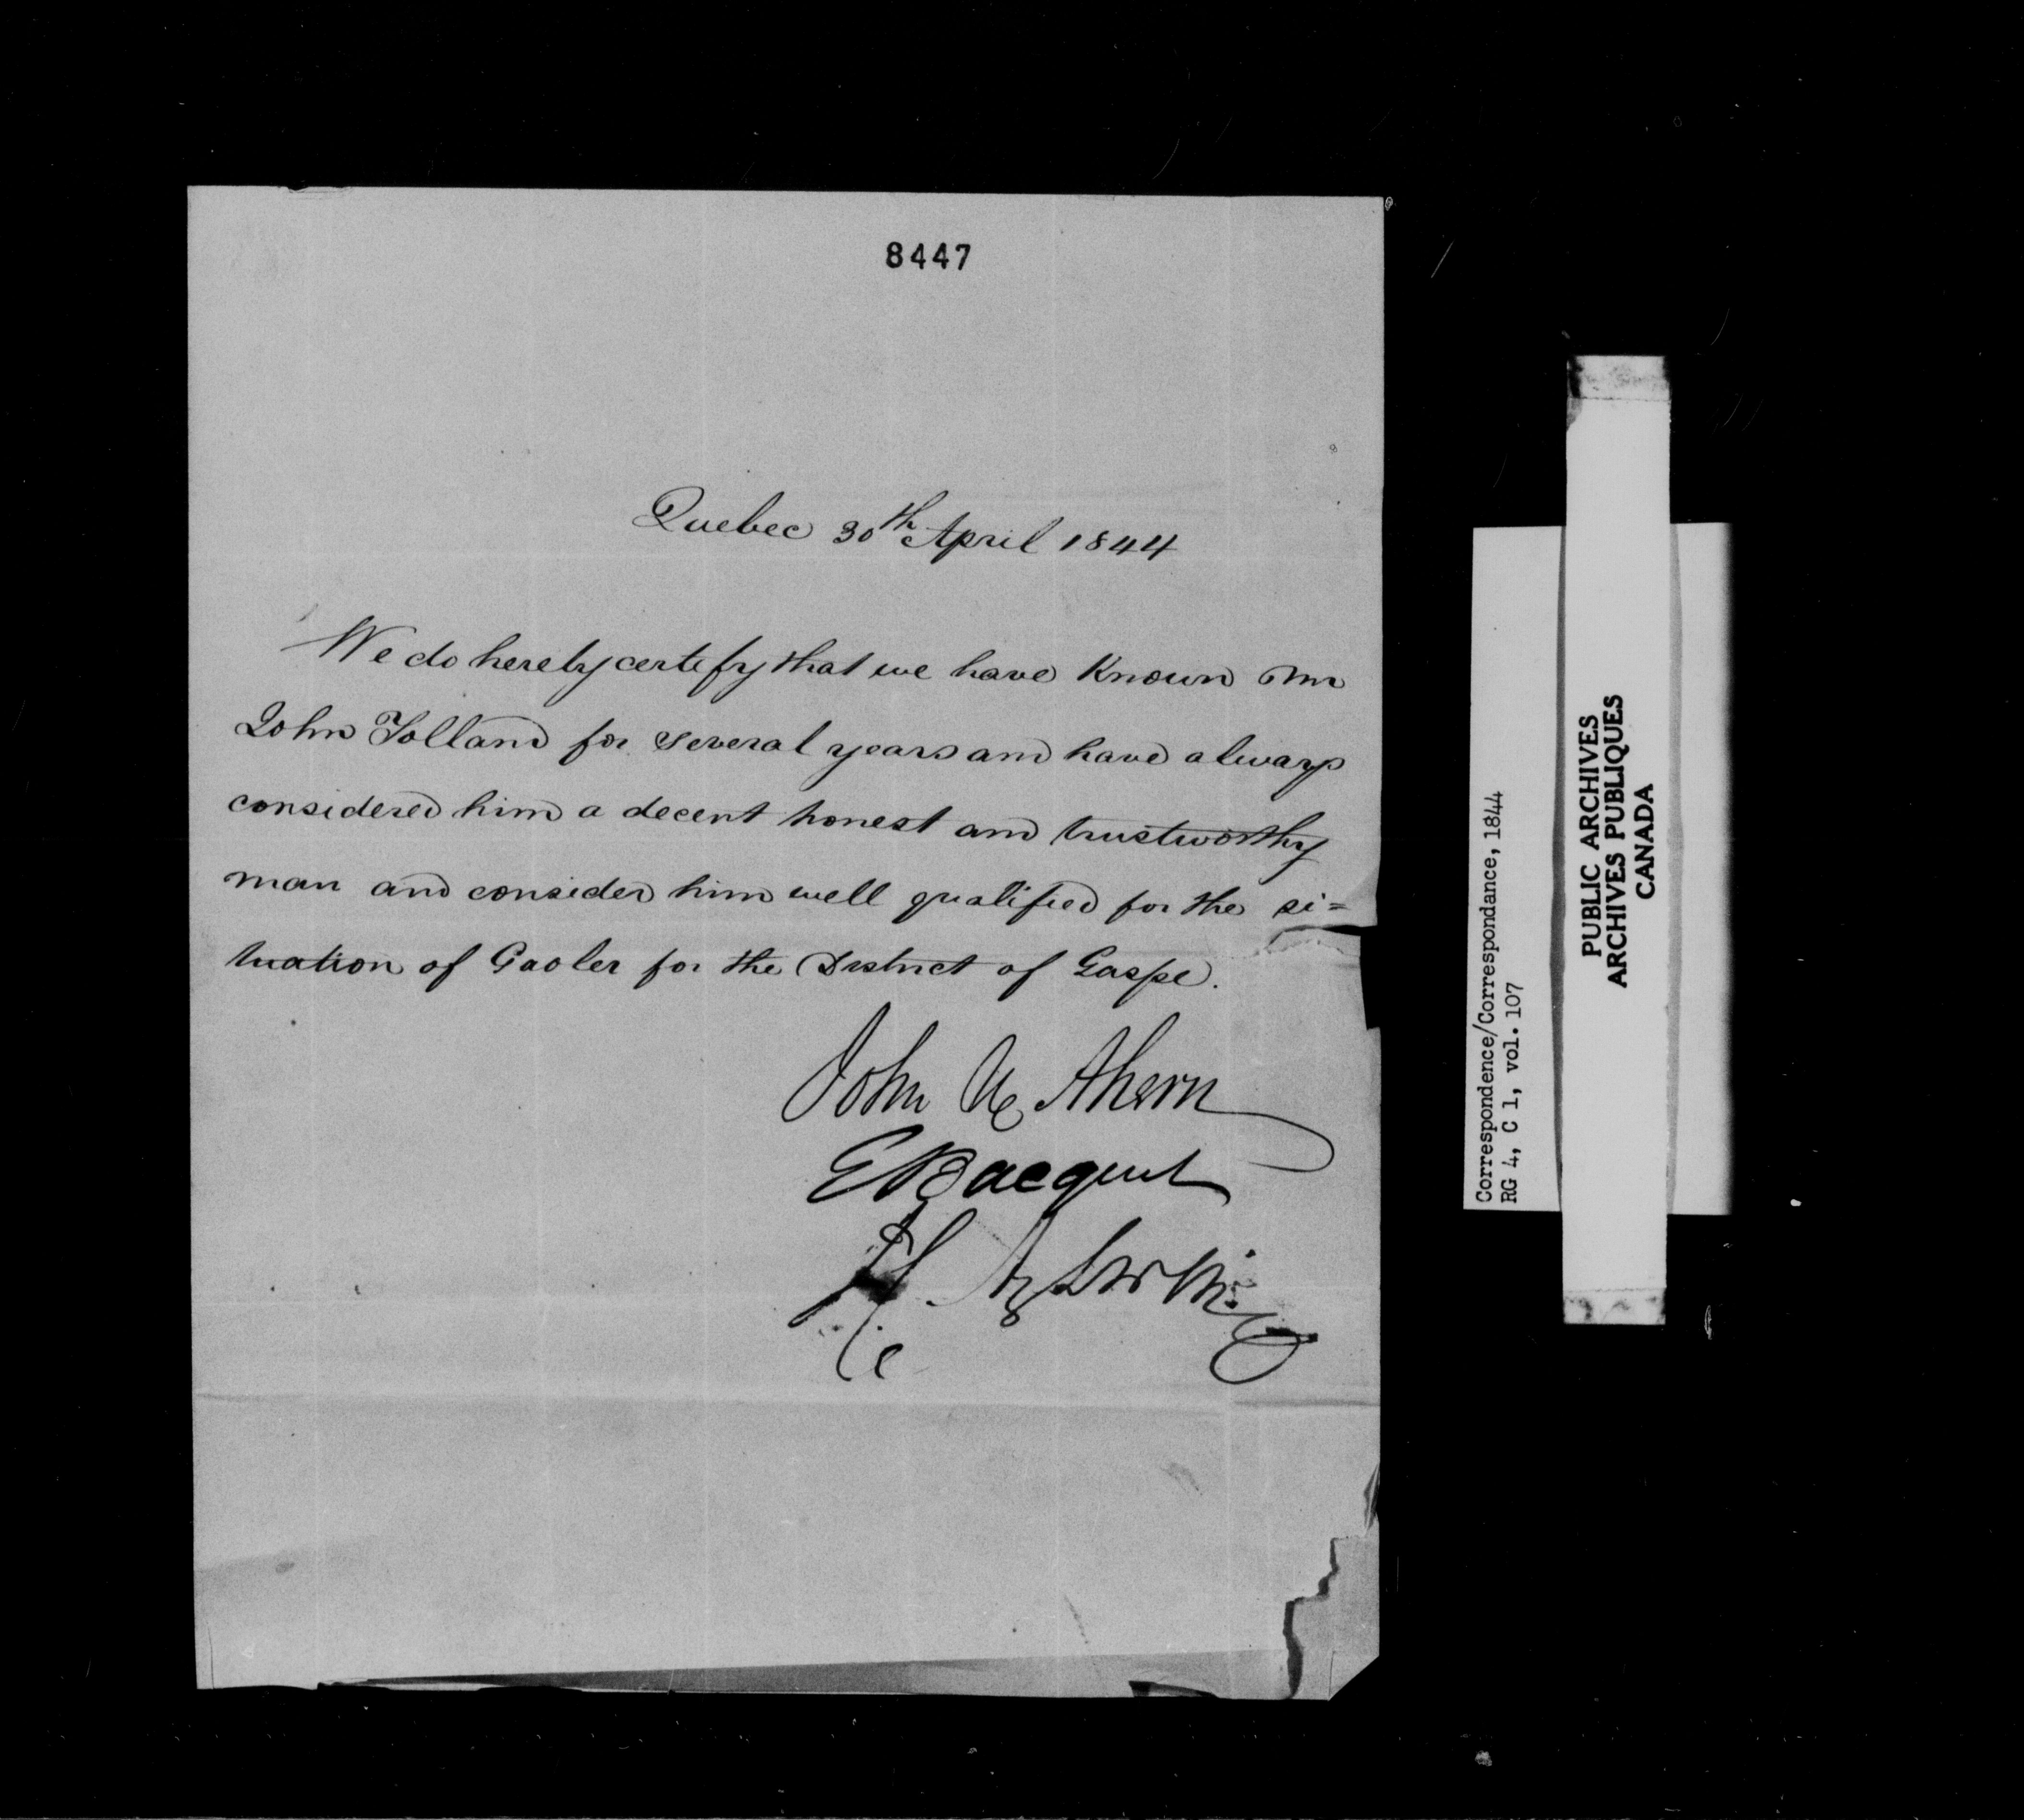 8447
Quebec 30th April 1844
We do hereby certify that we have Known Mr
John Tolland for several years and have always
considered him a decent honest and trustworthy
man and consider him well qualified for the si=
tuation of Gaoler for the District of Gaspe.
John Ahern
E Bacquet
Correspondence/Correspondance, 1844
RG 4, C 1, vol. 107
PUBLIC ARCHIVES
ARCHIVES PUBLIQUES
CANADA